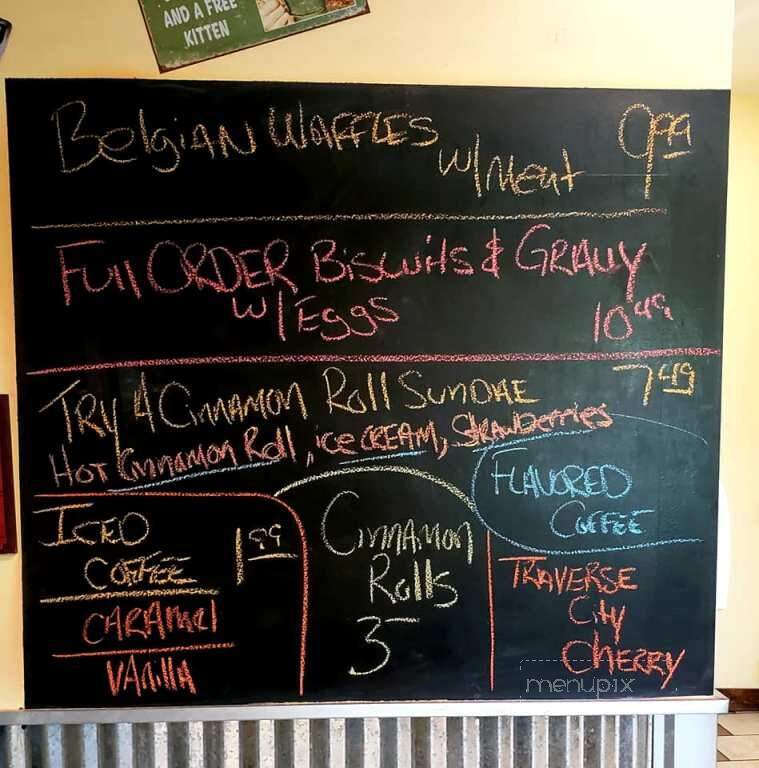 AND A FREE
KITTEN
Belgian Waffles
w/Meat 9.99
Full ORDER Biscuits & GRAVY
w/Eggs 10.49
TRY A Cinnamon Roll Sundae 7.49
Hot Cinnamon Roll, ice cream, Strawberries
FLAVORED
COFFEE
ICED
COFFEE 1.99
CARAMEL
VANilla
Cinnamon
Rolls
3
TRAVERSE
City
CHERRY
menupix